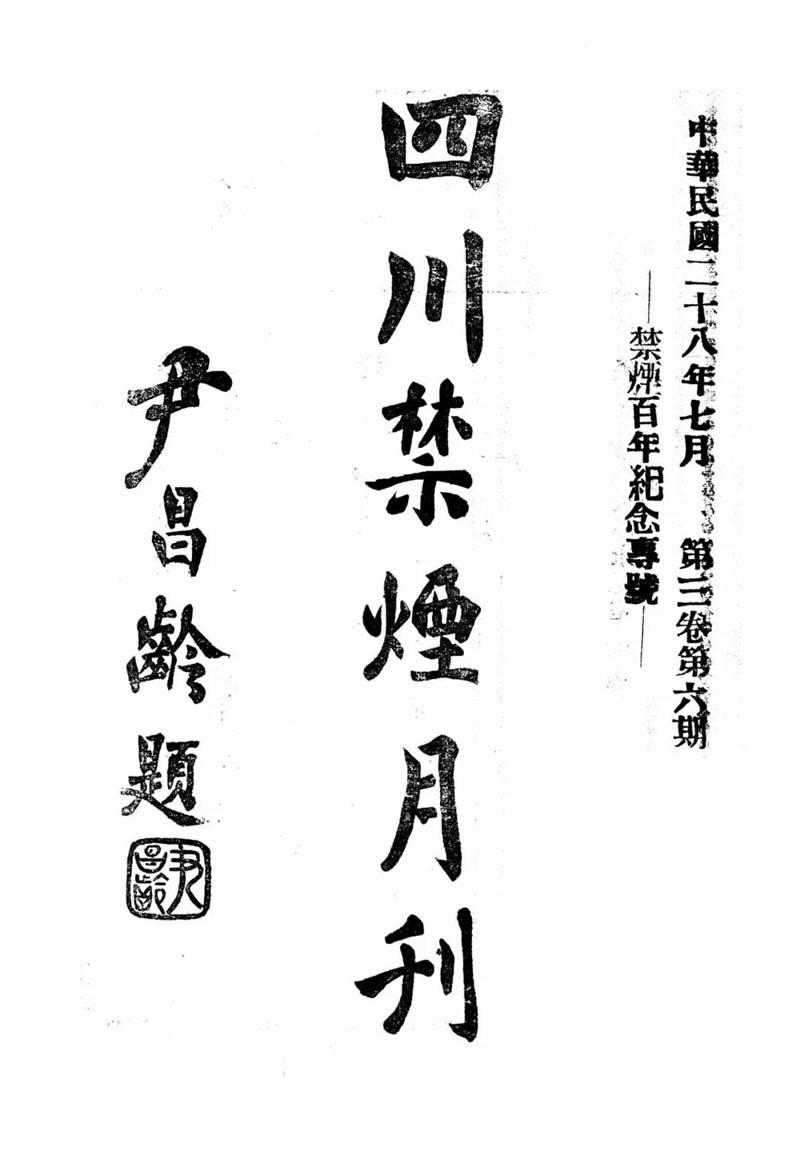 中華民國二十八年七月 第三卷第六期
——禁煙百年紀念專號——
四川禁煙月刊
尹昌齡題
尹昌齡